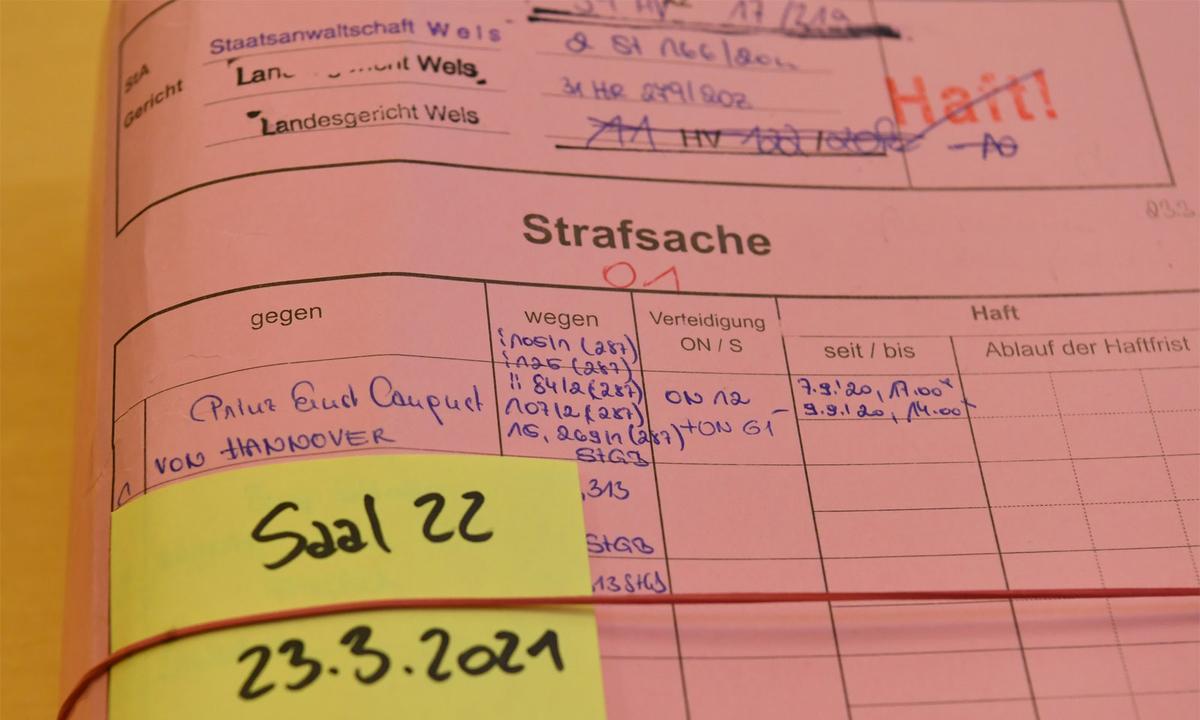 StA
Gericht
Staatsanwaltschaft Wels
Wels
Landesgericht Wels
17/219
2 St 166/20
31 HR 279/202
11 HV 122/
Haft!
Strafsache
01
gegen
wegen
Verteidigung
ON / S
Haft
seit / bis
Ablauf der Haftfrist
1
Prinz Ernst August
VON HANNOVER
105/1 (287)
125 (287)
84/2 (287)
107/2 (287)
15, 269/1 (287)
StGB
,313
StGB
,13 StGB
ON 12
+ON 61
7.9.'20, 17.00
9.9.'20, 14.00
Saal 22
23.3.2021